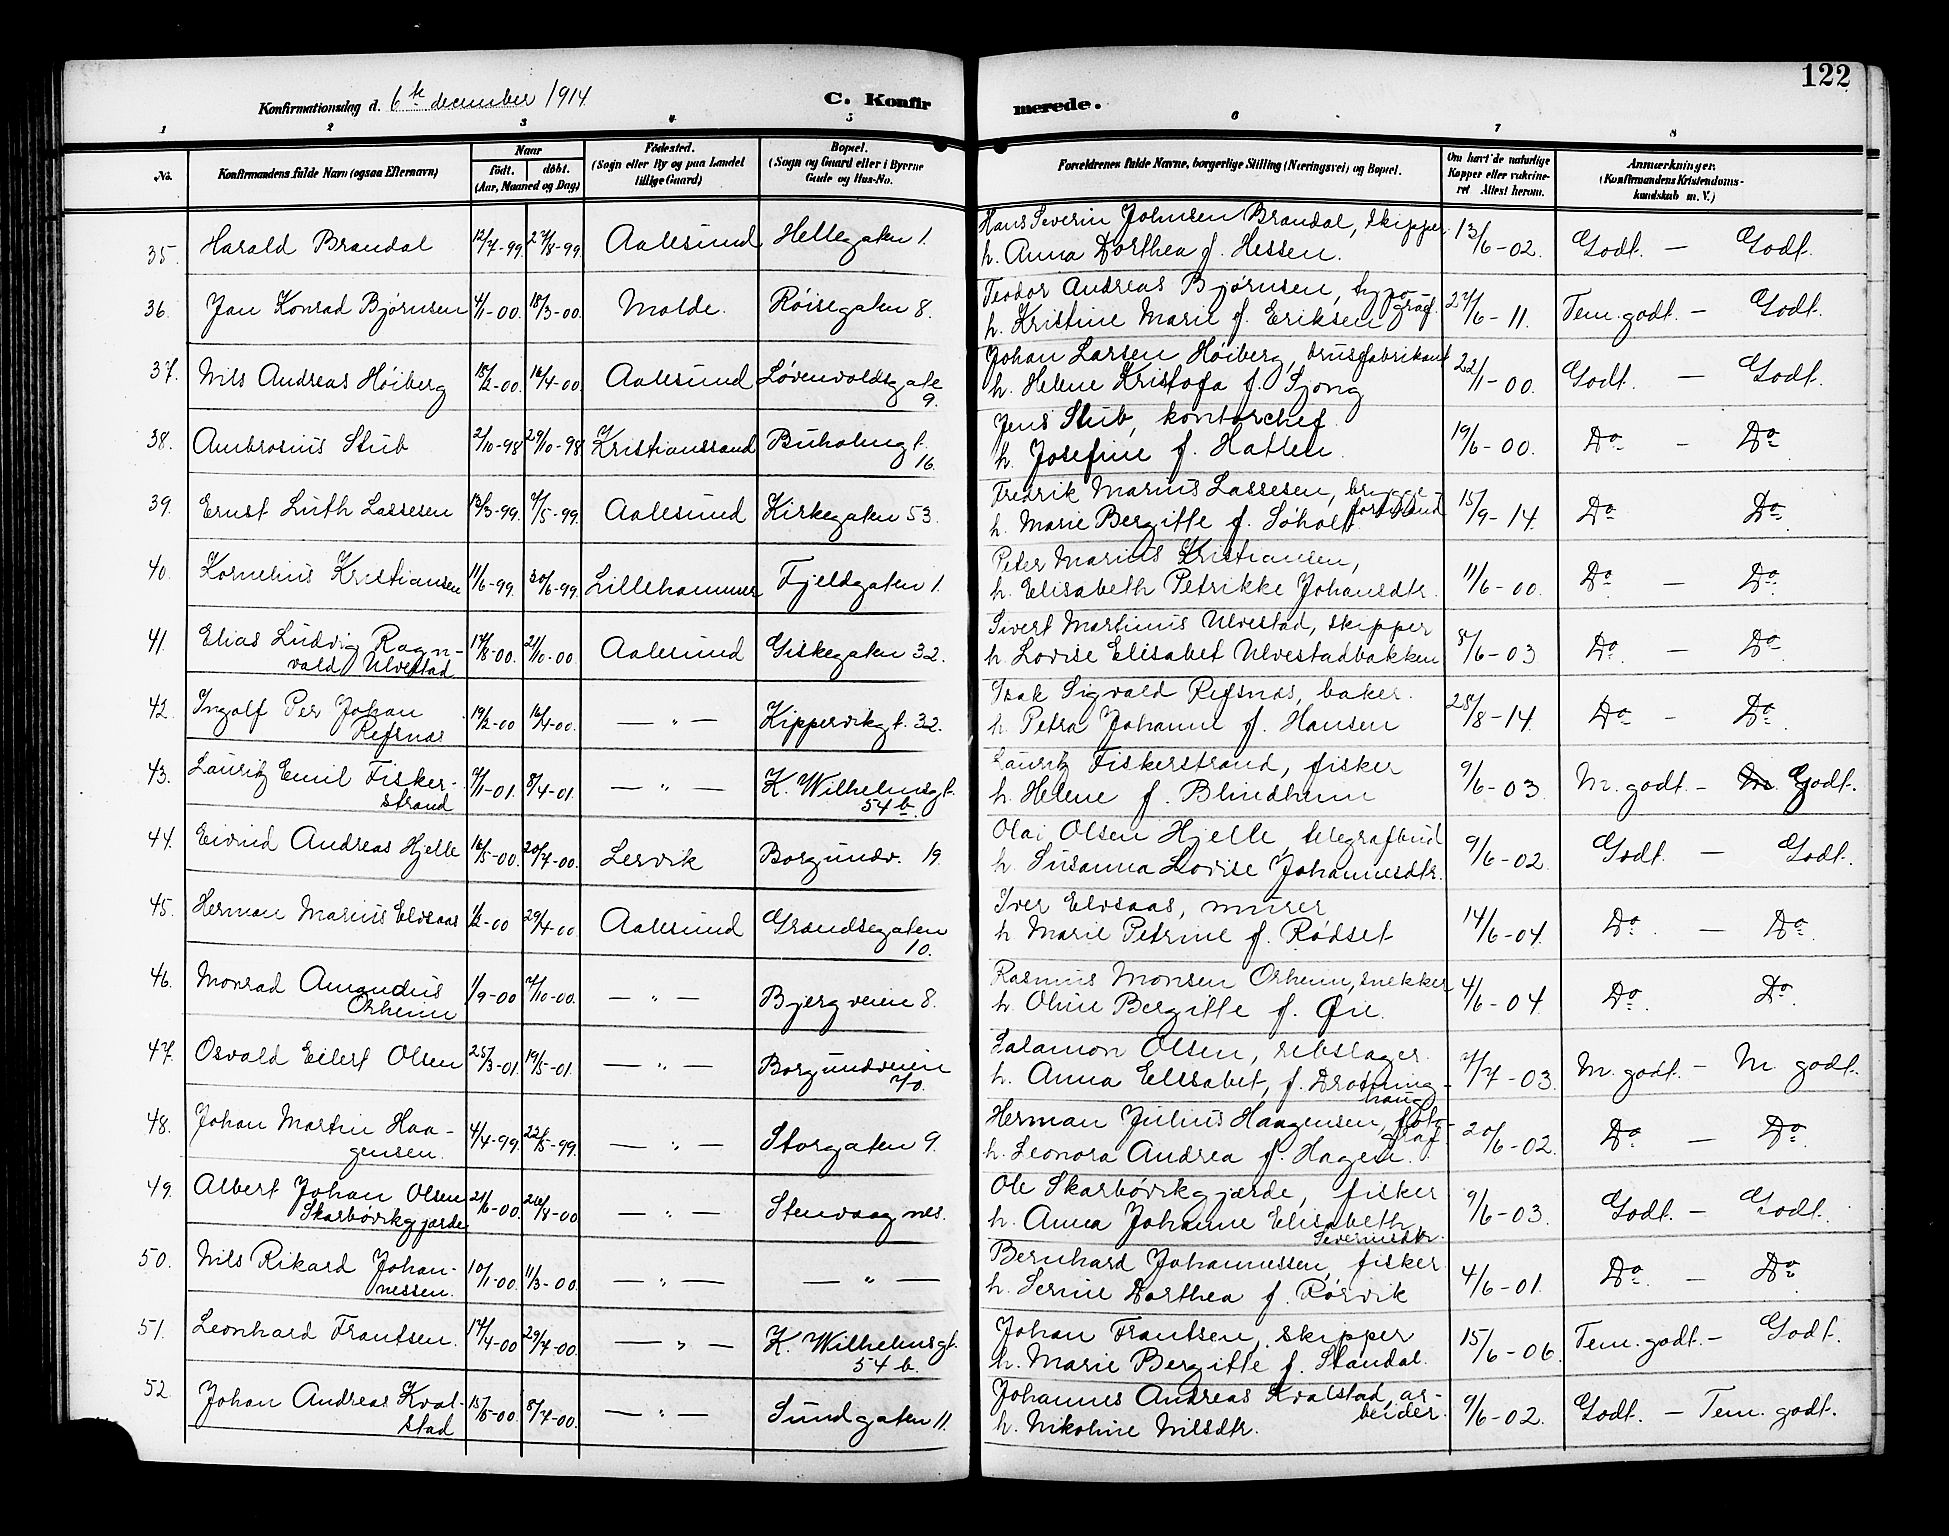 122
Konfirmationsdag d. 6te december 1914 C. Konfirmerede.
1 2 3 4 5 6 7 8
No. Konfirmandens fulde Navn (ogsaa Efternavn) Naar født. døbt. (Aar, Maaned og Dag) Fødested. (Sogn eller By og paa Landet tillige Gaard) Bopæl. (Sogn og Gaard eller i Byerne Gade og Hus-No. Forældrenes fulde Navne, borgerlige Stilling (Næringsvei) og Bopæl. Om havt de naturlige Kopper eller vakcineret Attest herom. Anmærkninger. (Konfirmandens Kristendomskundskab m. V.)
35. Harald Brandal 12/7-99 27/8-99 Aalesund Hellegaten 1. Hans Severin Johnsen Brandal, skipper
h. Anna Dorthea f. Hessen. 13/6-02. Godt. — Godt.
36. Jan Konrad Bjørnsen 4/1-00. 18/3-00. Molde. Røisegaten 8. Teodor Andreas Bjørnsen, typograf.
h. Kristine Marie f. Eriksen 27/6-11. Tem. godt. — Godt.
37. Nils Andreas Høiberg 18/2-00. 16/4-00 Aalesund Løvenvoldsgate 9. Johan Larsen Høiberg, brusfabrikant
h. Helene Kristofa f. Sjong 22/1-00. Godt. — Godt.
38. Ambrosius Stub 2/10-98 29/10-98 Kristianssand Buholmgt. 16. Jens Stub, kontorchef
h. Josefine f. Hatlen. 19/6-00. Do — Do
39. Ernst Luth Lassesen 13/3-99. 7/5-99. Aalesund Kirkegaten 53. Fredrik Marius Lassesen, bryggeformand
h. Marie Bergitte f. Søholt. 15/9-14. Do Do
40. Kornelius Kristiansen 11/6-99. 30/6-99. Lillehammer Fjeldgaten 1. Peter Marius Kristiansen,
h. Elisabeth Petrikke Johansdtr. 11/6-00. Do — Do
41. Elias Ludvig Ragnvald Ulvestad 17/8-00. 21/10-00 Aalesund Giskegaten 32. Sivert Martinus Ulvestad, skipper
h. Lovise Elisabet Ulvestadbakken 8/6-03 Do — Do
42. Ingolf Per Johan Refsnas 19/2-00 16/4-00. — " — Kippervikgt. 32. Isak Sigvald Refsnæs, baker.
h. Petra Johanne f. Hansen 28/8-14. Do — Do
43. Lauritz Emil Fiskerstrand 9/1-01. 8/4-01. — " — K. Wilhelmsgt. 54 b. Lauritz Fiskerstrand, fisker
h. Helene f. Blindheim 9/6-03 M. godt. — Godt.
44. Eivind Andreas Hjelle 16/5-00. 20/7-00. Lervik Borgundv. 19. Olai Olsen Hjelle, telegrafbud
h. Susanna Lovise Johannesdtr. 9/6-02. Godt. — Godt.
45. Herman Marius Elvsaas 1/2-00 29/4-00. Aalesund Grændsegaten 10. Iver Elvsaas, murer
h Marie Petrine f. Rødset 14/6-04. Do — Do
46. Monrad Amandus Orheim 1/9-00 7/10-00. — " — Bjergveien 8. Rasmus Monsen Orheim, snekker
h. Oline Bergitte f. Øie. 4/6-04 Do Do
47. Osvald Eilert Olsen 25/3-01. 19/5-01. — " — Borgundveien 70. Salamon Olsen, rebslager.
h. Anna Elisabet, f. Dronninghaug 7/7-03. M. godt. — M godt.
48. Johan Martin Haagensen. 4/4-99. 22/5-99. — " — Storgaten 9. Herman Julius Haagensen, fotograf
h. Leonora Andrea f. Hagen. 20/6-02. Do — Do
49. Albert Johan Olsen Skarbøvikgjærde 21/6-00. 26/8-00 — " — Stenvaagnes. Ole Skarbøvikgjærde, fisker
h. Anna Johanne Elisabeth Severinsdtr. 9/6-03. Godt. — Godt.
50. Nils Rikard Johannessen. 10/1-00. 11/3-00. — " — — " — Bernhard Johannessen, fisker
h. Serine Dorthea f. Rørvik 4/6-01. Do — Do
51. Leonhard Frantsen. 17/4-00 29/7-00. — " — K. Wilhelmsgt. 54 b. Johan Frantsen, skipper
h. Marie Bergitte f. Standal. 15/6-06. Tem. godt. — Godt.
52. Johan Andreas Kvalstad 15/5-00. 8/7-00. — " — Sundgaten 11. Johannes Andreas Kvalstad, arbeider.
h. Nikoline Nilsdtr. 9/6-02. Godt. — Tem. godt.